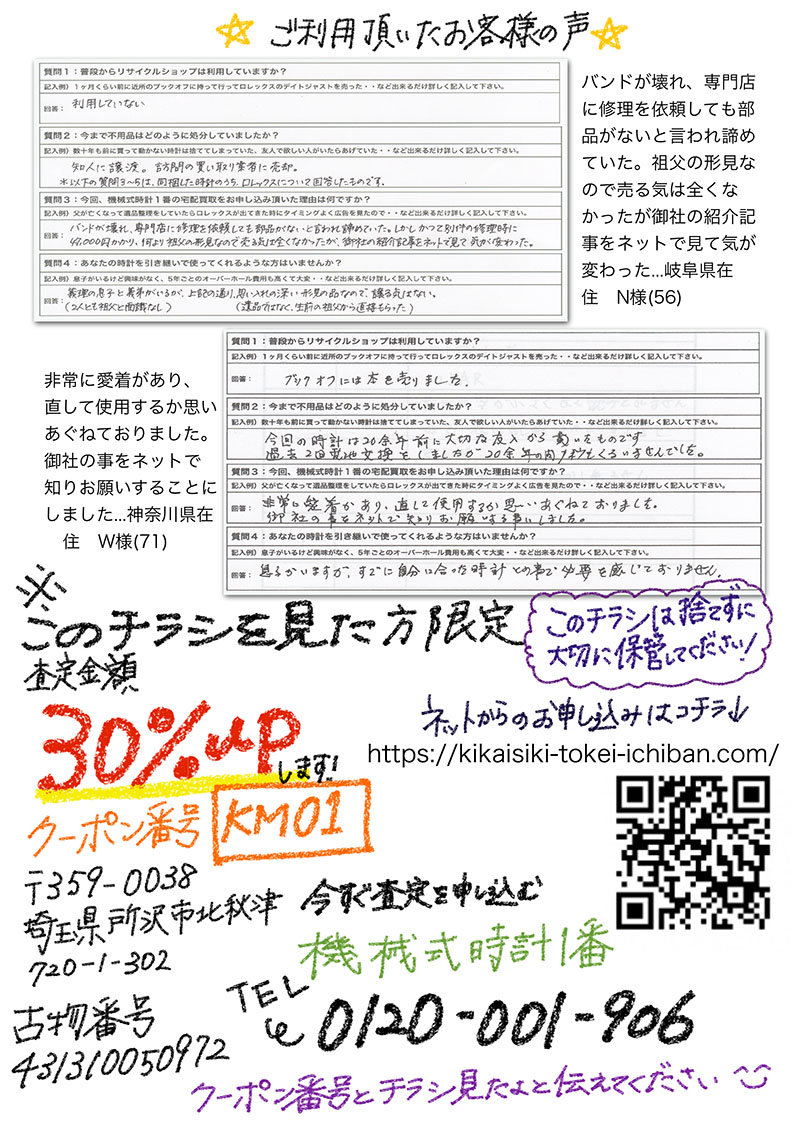 ご利用頂いたお客様の声
質問1：普段からリサイクルショップは利用していますか？
記入例）1ヶ月くらい前に近所のブックオフに持って行ってロレックスのデイトジャストを売った・・など出来るだけ詳しく記入して下さい。
回答： 利用していない
質問2：今まで不用品はどのように処分していましたか？
記入例）数十年も前に買って動かない時計は捨ててしまっていた、友人で欲しい人がいたらあげていた・・など出来るだけ詳しく記入して下さい。
知人に譲渡。訪問の買い取り業者に売却。
回答： ※以下の質問3〜5は、同梱した時計のうち、ロレックスについて回答したものです。
質問3：今回、機械式時計1番の宅配買取をお申し込み頂いた理由は何ですか？
記入例）父が亡くなって遺品整理をしていたらロレックスが出てきた時にタイミングよく広告を見たので・・など出来るだけ詳しく記入して下さい。
バンドが壊れ、専門店に修理を依頼しても部品がないと言われ諦めていた。しかしかつて別件の修理時に
回答： 47,000円かかり、何より祖父の形見なので売る気は全くなかったが、御社の紹介記事をネットで見て気が変わった。
質問4：あなたの時計を引き継いで使ってくれるような方はいませんか？
記入例）息子がいるけど興味がなく、5年ごとのオーバーホール費用も高くて大変・・など出来るだけ詳しく記入して下さい。
回答： 義理の息子と義弟がいるが、上記の通り、思い入れの深い形見の品なので、譲る気はない。
（2人とも祖父と面識なし） （遺品ではなく、生前の祖父から直接もらった）
バンドが壊れ、専門店
に修理を依頼しても部
品がないと言われ諦め
ていた。祖父の形見な
ので売る気は全くな
かったが御社の紹介記
事をネットで見て気が
変わった...岐阜県在
住　N様(56)
質問1：普段からリサイクルショップは利用していますか？
記入例）1ヶ月くらい前に近所のブックオフに持って行ってロレックスのデイトジャストを売った・・など出来るだけ詳しく記入して下さい。
回答： ブックオフには本を売りました。
質問2：今まで不用品はどのように処分していましたか？
記入例）数十年も前に買って動かない時計は捨ててしまっていた、友人で欲しい人がいたらあげていた・・など出来るだけ詳しく記入して下さい。
今回の時計は20余年前に大切な友人から貰いたものです
回答： 過去2回電池交換をしましたが20余年の間
質問3：今回、機械式時計1番の宅配買取をお申し込み頂いた理由は何ですか？
記入例）父が亡くなって遺品整理をしていたらロレックスが出てきた時にタイミングよく広告を見たので・・など出来るだけ詳しく記入して下さい。
非常に愛着があり、直して使用するか思いあぐねておりました。
回答： 御社の事をネットで知りお願いする事にしました。
質問4：あなたの時計を引き継いで使ってくれるような方はいませんか？
記入例）息子がいるけど興味がなく、5年ごとのオーバーホール費用も高くて大変・・など出来るだけ詳しく記入して下さい。
回答： 息子がいますが、すでに自分に合った時計との事で必要を感じておりません。
非常に愛着があり、
直して使用するか思い
あぐねておりました。
御社の事をネットで
知りお願いすることに
しました...神奈川県在
住　W様(71)
※
このチラシを見た方限定
このチラシは捨てずに
大切に保管してください！
査定金額
30%up
します！
ネットからのお申し込みはコチラ↓
https://kikaisiki-tokei-ichiban.com/
クーポン番号 KM01
〒359-0038
埼玉県所沢市北秋津
720-1-302
今すぐ査定を申し込む
機械式時計1番
TEL
0120-001-906
古物番号
431310050972
クーポン番号とチラシ見たよと伝えてください